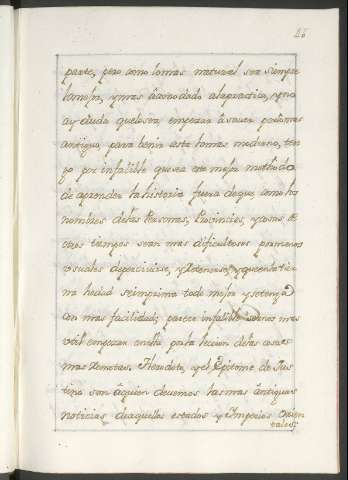 26
parte, pero como lo mas natural sea siempre
lo mejor, y mas acomodado a la practica, y no
ay duda que lo sea empezar à saver por lo mas
antiguo, para benir asta lo mas moderno, ten
go por infalible que sea este mejor methodo
de aprender la historia fuera de que como los
nombres de las Personas, Provincias, y cosas de
otros tiempos sean mas dificultosos por menos
usuales de percivirse, y retenerse, y que en la tier
na hedad se imprima todo mejor y retenga
con mas facilidad; parece infalible sernos mas
util empezar en ella por la leccion de las cosas
mas remotas. Herodoto, y el Epitome de Jus
tino son à quien devemos las mas antiguas
noticias de aquellos estados y Imperios Orien
tales;